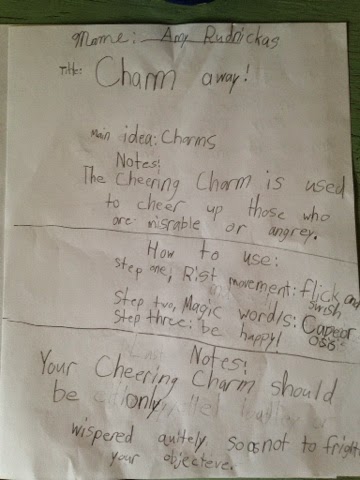 Name: Amy Rudnickas
Title: Charm away!
Main idea: Charms
Notes:
The Cheering Charm is used
to cheer up those who
are misrable or angrey.
How to use:
step one, Rist movement: flick and
swish
Step two, Magic word/s:
Step three: be happy!
Notes:
Your Cheering Charm should
be only
wispered quitely. so as not to fright
your objecteve.